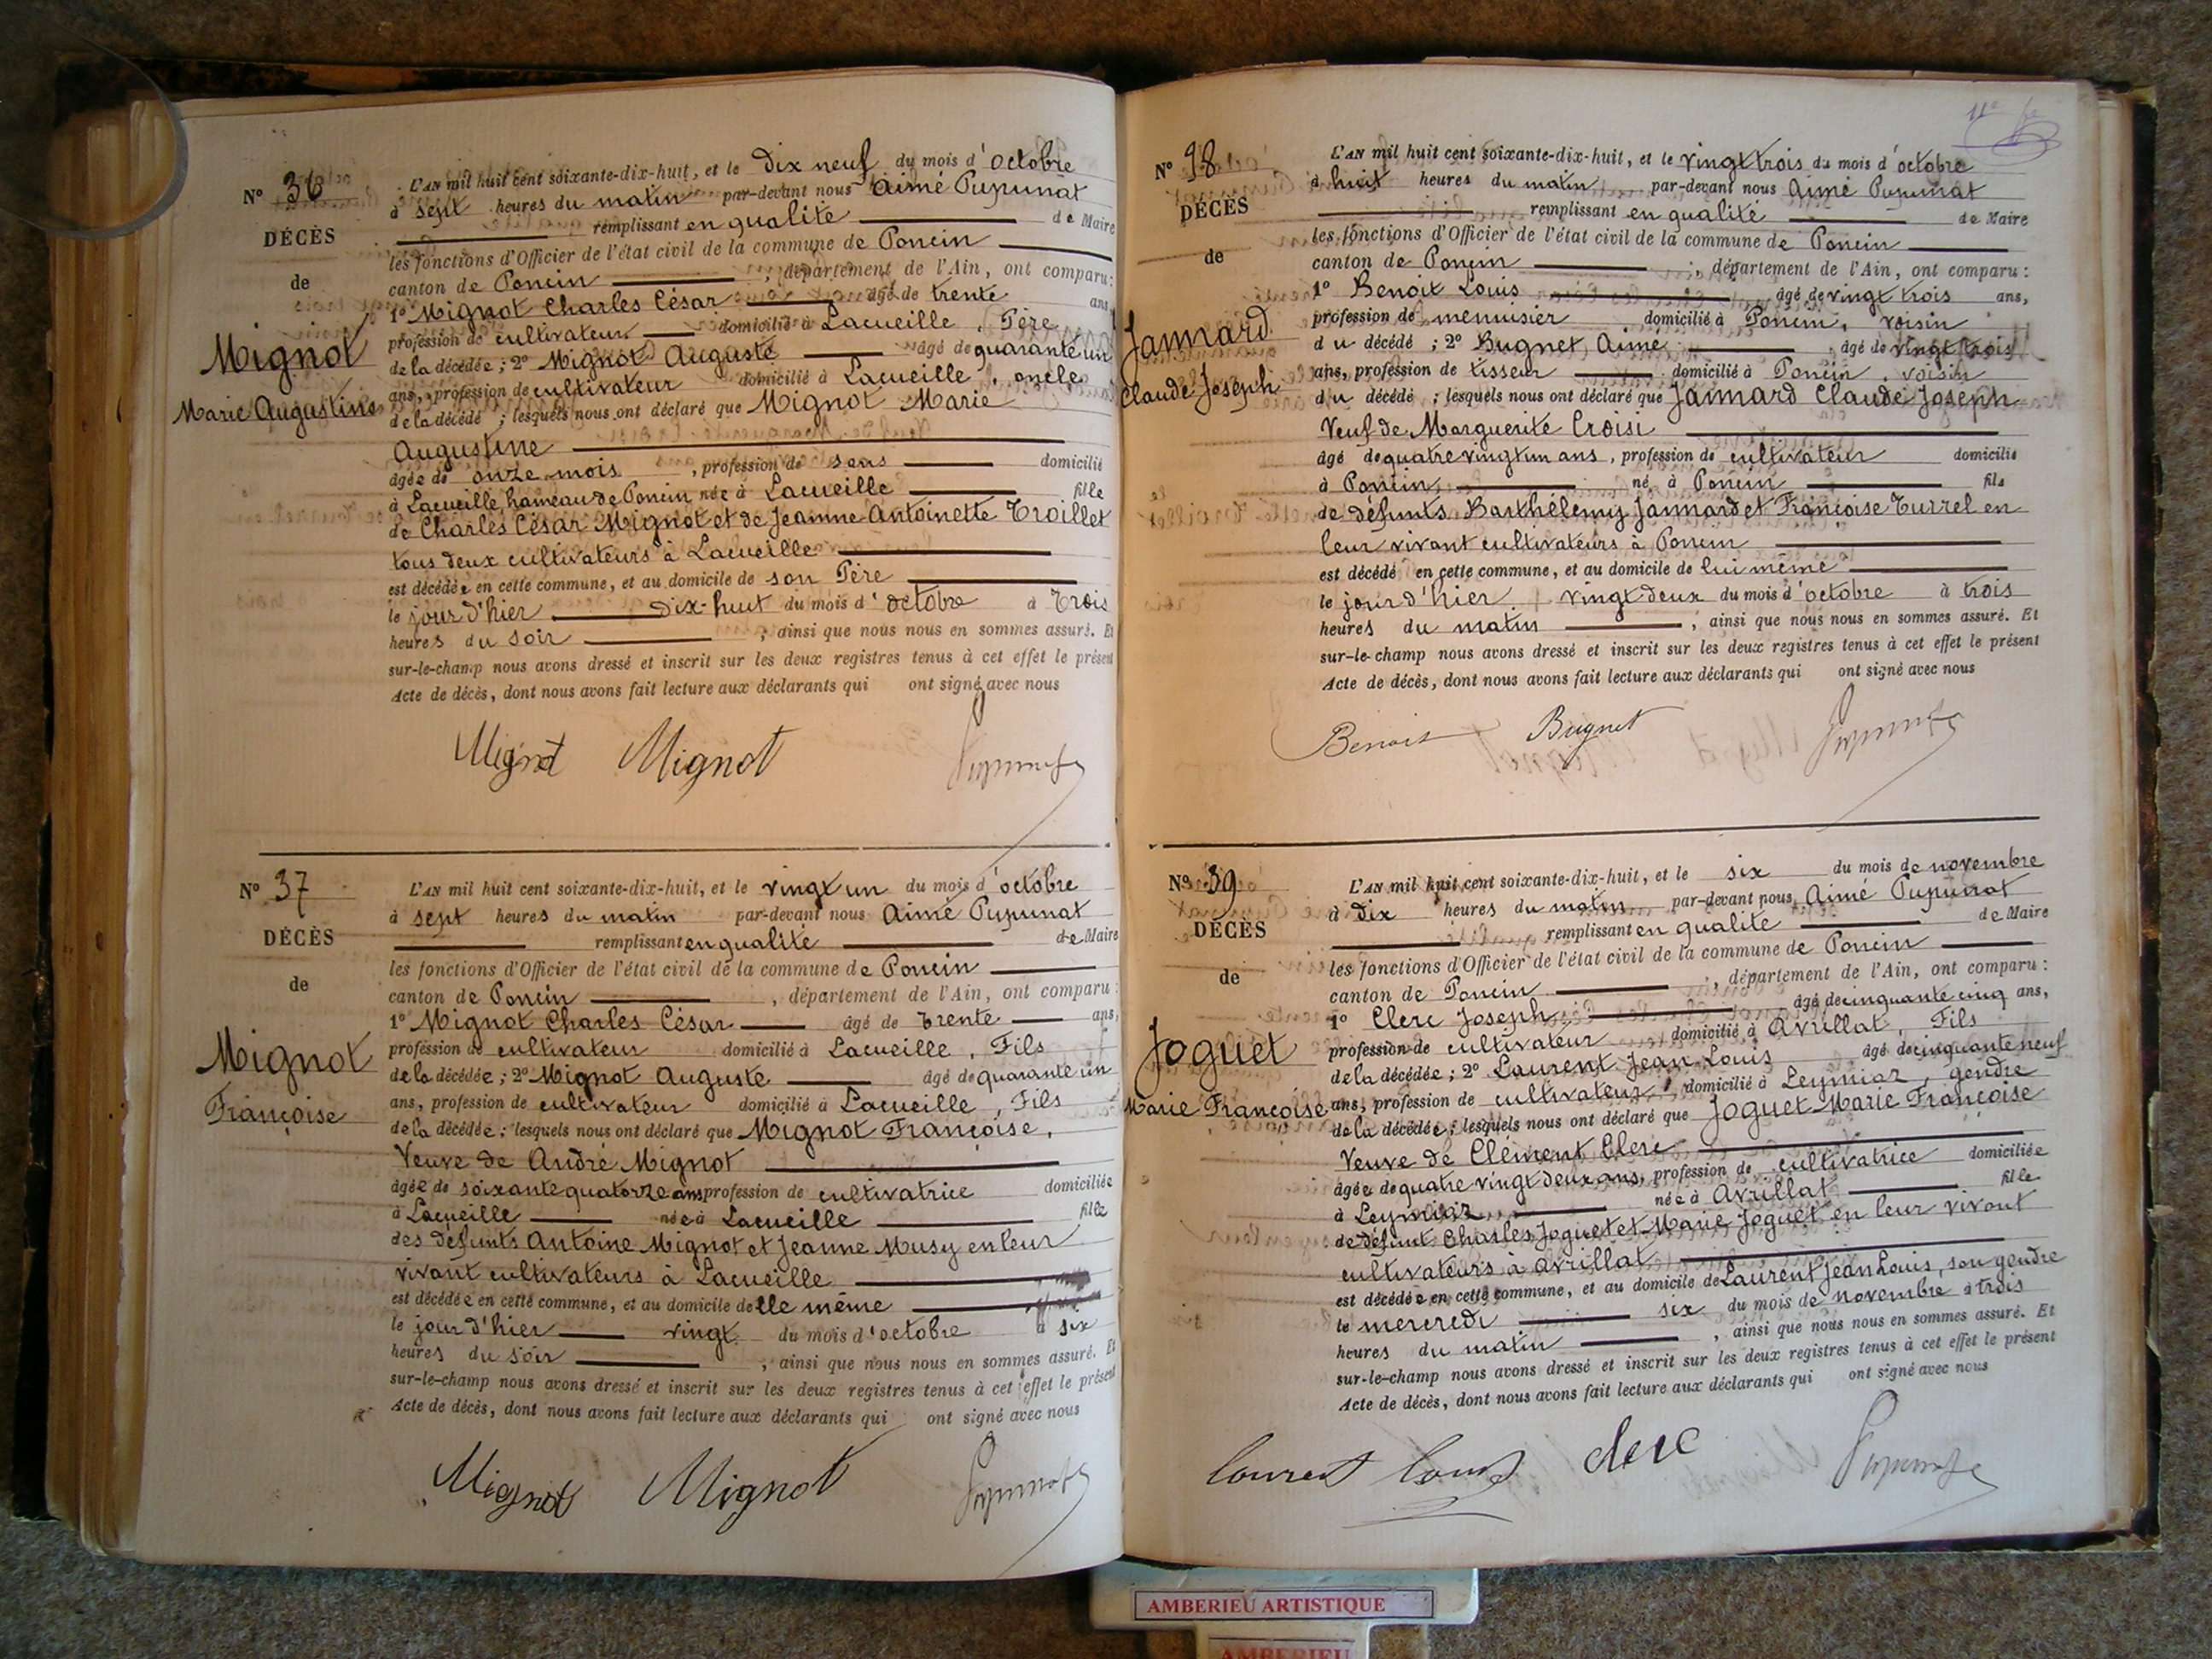 N° 36
DÉCÈS
de
Mignot
Marie Augustine
L'AN mil huit cent soixante-dix-huit, et le Dix neuf du mois d'octobre
à sept heures du matin par-devant nous Aimé Pupunat
remplissant en qualité de Maire
les fonctions d'Officier de l'état civil de la commune de Poncin
canton de Poncin, département de l'Ain, ont comparu:
1° Mignot Charles César âgé de trente ans,
profession de cultivateur domicilié à Lacueille, Père
de la décédée; 2° Mignot Auguste âgé de quarante un
ans, profession de cultivateur domicilié à Lacueille, oncle
de la décédé; lesquels nous ont déclaré que Mignot Marie
Augustine
âgée de onze mois, profession de sans domicilié
à Lacueille, hameau de Poncin née à Lacueille fille
de Charles César Mignot et de Jeanne Antoinette Troillet
tous deux cultivateurs à Lacueille
est décédée en cette commune, et au domicile de son Père
le jour d'hier dix-huit du mois d'octobre à Trois
heures du soir; ainsi que nous nous en sommes assuré. Et
sur-le-champ nous avons dressé et inscrit sur les deux registres tenus à cet effet le présent
Acte de décès, dont nous avons fait lecture aux déclarants qui ont signé avec nous
Mignot Mignot Pupunat
N° 37
DÉCÈS
de
Mignot
Françoise
L'AN mil huit cent soixante-dix-huit, et le vingt un du mois d'octobre
à sept heures du matin par-devant nous Aimé Pupunat
remplissant en qualité de Maire
les fonctions d'Officier de l'état civil de la commune de Poncin
canton de Poncin, département de l'Ain, ont comparu:
1° Mignot Charles César âgé de trente ans,
profession de cultivateur domicilié à Lacueille, Fils
de la décédée; 2° Mignot Auguste âgé de quarante un
ans, profession de cultivateur domicilié à Lacueille, Fils
de la décédée; lesquels nous ont déclaré que Mignot Françoise,
Veuve de André Mignot
âgée de soixante quatorze ans profession de cultivatrice domiciliée
à Lacueille née à Lacueille fille
des défunts Antoine Mignot et Jeanne Musy en leur
vivant cultivateurs à Lacueille
est décédée en cette commune, et au domicile de lle même
le jour d'hier vingt du mois d'octobre à six
heures du soir; ainsi que nous nous en sommes assuré. Et
sur-le-champ nous avons dressé et inscrit sur les deux registres tenus à cet effet le présent
Acte de décès, dont nous avons fait lecture aux déclarants qui ont signé avec nous
Mignot Mignot Pupunat
N° 38
DÉCÈS
de
Jannard
Claude Joseph
L'AN mil huit cent soixante-dix-huit, et le vingt trois du mois d'octobre
à huit heures du matin par-devant nous Aimé Pupunat
remplissant en qualité de Maire
les fonctions d'Officier de l'état civil de la commune de Poncin
canton de Poncin, département de l'Ain, ont comparu:
1° Benoit Louis âgé de vingt trois ans,
profession de menuisier domicilié à Poncin, voisin
du décédé; 2° Bugnet Aimé âgé de vingt trois
ans, profession de tisseur domicilié à Poncin, voisin
du décédé; lesquels nous ont déclaré que Jannard Claude Joseph
Veuf de Marguerite Croisi
âgé de quatre vingt un ans, profession de cultivateur domicilié
à Poncin, né à Poncin fils
de défunts Barthélemy Jannard et Françoise Turrel en
leur vivant cultivateurs à Poncin
est décédé en cette commune, et au domicile de lui même
le jour d'hier vingt deux du mois d'octobre à trois
heures du matin; ainsi que nous nous en sommes assuré. Et
sur-le-champ nous avons dressé et inscrit sur les deux registres tenus à cet effet le présent
Acte de décès, dont nous avons fait lecture aux déclarants qui ont signé avec nous
Benoit Bugnet Pupunat
N° 39
DÉCÈS
de
Joguet
Marie Françoise
L'AN mil huit cent soixante-dix-huit, et le six du mois de novembre
à dix heures du matin par-devant nous Aimé Pupunat
remplissant en qualité de Maire
les fonctions d'Officier de l'état civil de la commune de Poncin
canton de Poncin, département de l'Ain, ont comparu:
1° Clerc Joseph, âgé de cinquante cinq ans,
profession de cultivateur domicilié à Avrillat, Fils
de la décédée; 2° Laurent Jean Louis âgé de cinquante neuf
ans, profession de cultivateur, domicilié à Leymiaz, gendre
de la décédée; lesquels nous ont déclaré que Joguet Marie Françoise
Veuve de Clément Clerc
âgée de quatre vingt deux ans, profession de cultivatrice domiciliée
à Leymiaz née à Avrillat fille
de défunt Charles Joguet et Marie Joguet en leur vivant
cultivateurs à Avrillat
est décédée en cette commune, et au domicile de Laurent Jean Louis, son gendre
le mercredi six du mois de novembre à trois
heures du matin, ainsi que nous nous en sommes assuré. Et
sur-le-champ nous avons dressé et inscrit sur les deux registres tenus à cet effet le présent
Acte de décès, dont nous avons fait lecture aux déclarants qui ont signé avec nous
Laurent Louis Clerc Pupunat
AMBERIEU ARTISTIQUE
AMBERIEU